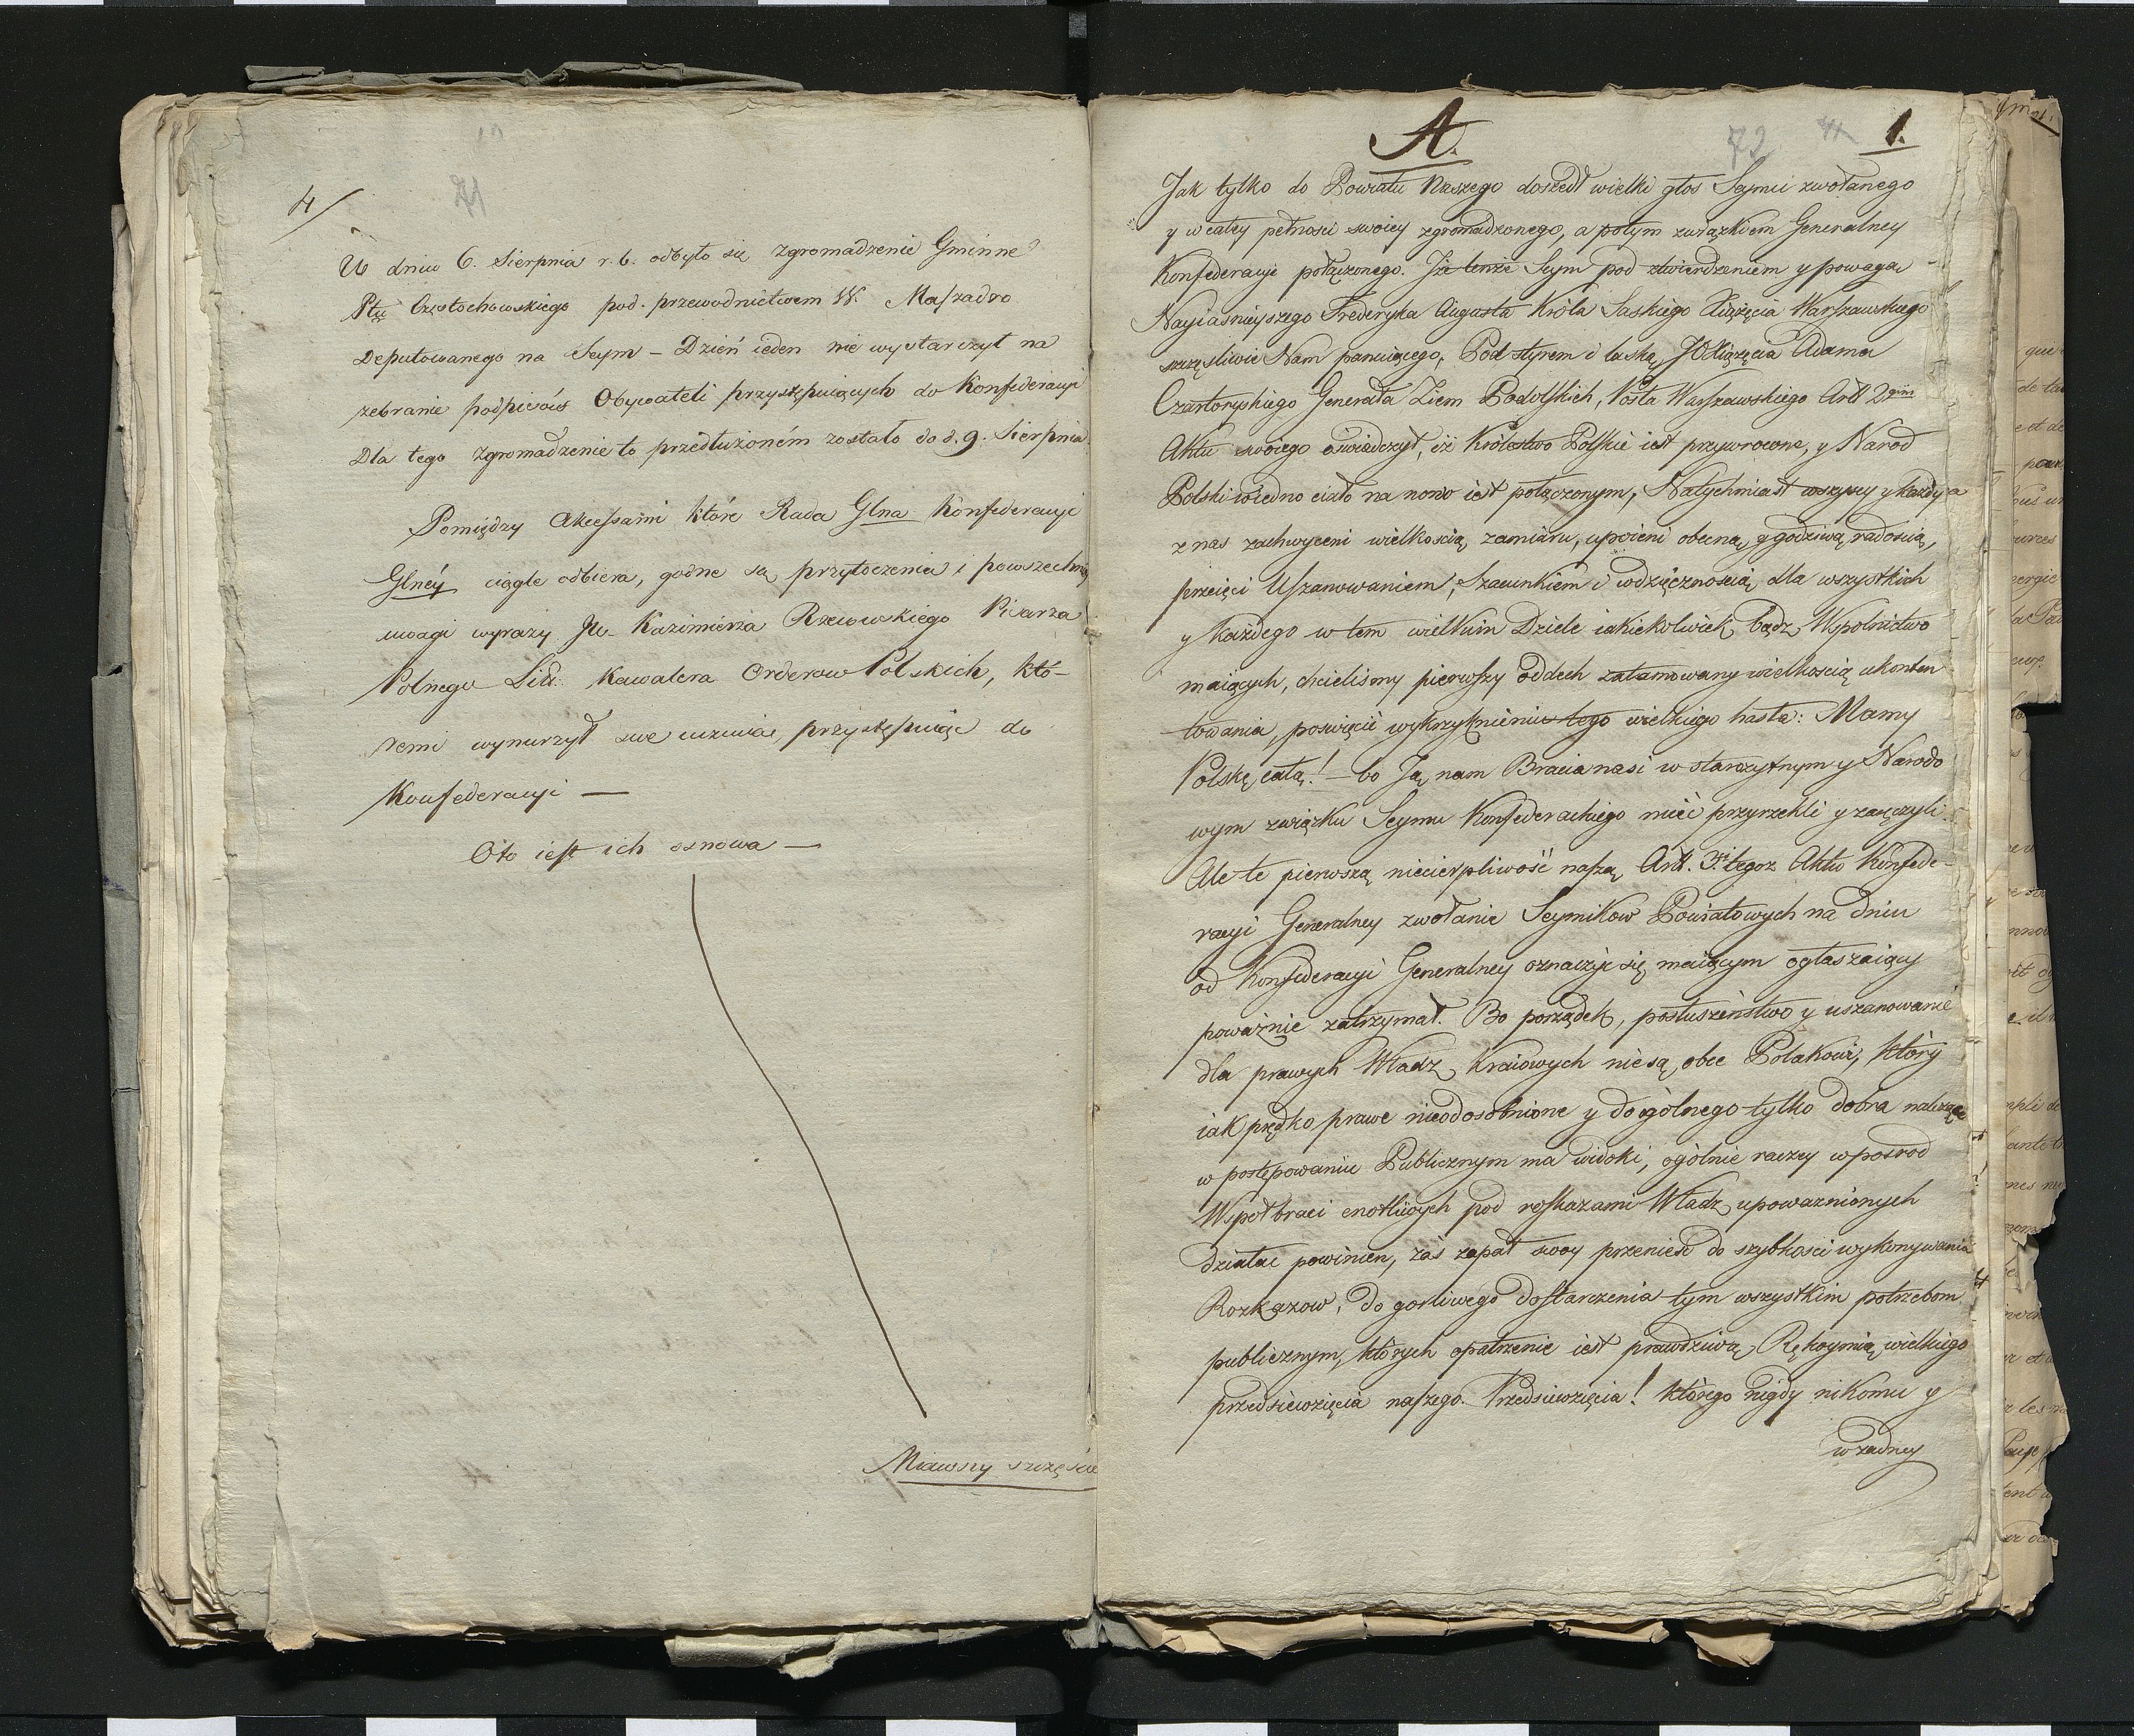 4/
71
W dniu 6. Sierpnia r. b. odbyło się zgromadzenie Gminne
Ptu Częstochowskiego pod. przewodnictwem W. Maszadro
Deputowanego na Seym – Dzień ieden nie wystarczył na
zebranie podpisów Obywateli przystępuiących do Konfederacyi
Dla tego zgromadzenie to przedłużoném zostało do d. 9. Sierpnia.
Pomiędzy Akcessami które Rada Glna Konfederacyi
Glnéy ciągle odbiera, godne są przytoczenia i powszechney
uwagi wyrazy Jw. Kazimierza Rzewuskiego Pisarza
Polnego Litt. Kawalera Orderow Polskich, któ-
remi wynurzył swe uczucia, przystępuiąc do
Konfederacyi —
Oto iest ich osnowa —
Miawszy szczęście
A.
72 1.
Jak tylko do Powiatu Naszego doszedł wielki głos Seymu zwołanego
y w całey pełności swoiey zgromadzonego, a potym związkiem Generalney
Konfederacyi połączonego. Iże tenże Seym pod stwierdzeniem y powagą
Nayiaśnieyszego Frederyka Augusta Króla Saskiego Xiążęcia Warszawskiego
szczęśliwie Nam panuiącego, Pod styrem i laską JO Xiążęcia Adama
Czartoryskiego Generała Ziem Podolskich, Posła Warszawskiego Artt 2gim
Aktu swoiego oświadczył, iż Królestwo Polskie iest przywrocone, y Narod
Polski w iedno ciało na nowo iest połączonym, Natychmiast wszyscy y każdy
z nas zachwyceni wielkością zamiaru, upoieni obecną y godziwą radością,
przeięci Uszanowaniem, Szacunkiem i wdzięcznością dla wszystkich
y każdego w tem wielkim Dziele iakiekolwiek bądz Wspolnictwo
maiących, chcieliśmy pierwszy oddech zatamowany wielkością ukonten
towania, poswięcić wykrzyknieniu tego wielkiego hasła: Mamy
Polskę całą! – bo Ją nam Bracia nasi w starożytnym y Narodo
wym związku Seymu Konfederackiego mieć przyrzekli y zaręczyli.
Ale te pierwszą niecierpliwość naszą, Artt. 3ci tegoz Aktu Konfede-
racyi Generalney zwołanie Seymikow Powiatowych na dniu
od Konfederacyi Generalney oznaczyć się maiącym ogłaszaiący
poważnie zatrzymał. Bo porządek, posłuszeństwo y uszanowanie
dla prawych Władz Kraiowych nie są obce Polakowi, który
iak prędko prawe nieodosobnione y do ogólnego tylko dobra należące
w postępowaniu Publicznym ma widoki, ogólnie raczey w pośrod
Wspołbraci cnotliwych pod roskazami Władz upowaznionych
działać powinien, zaś zapał swoy przenieść do szybkości wykonywania
Rozkazow, do gorliwego dostarczenia tym wszystkim potrzebom
publicznym, których opatrzenie iest prawdziwą Rękoymią wielkiego
przedsięwzięcia naszego. Przedsiewzięcia! którego nigdy nikomu y
w żadney